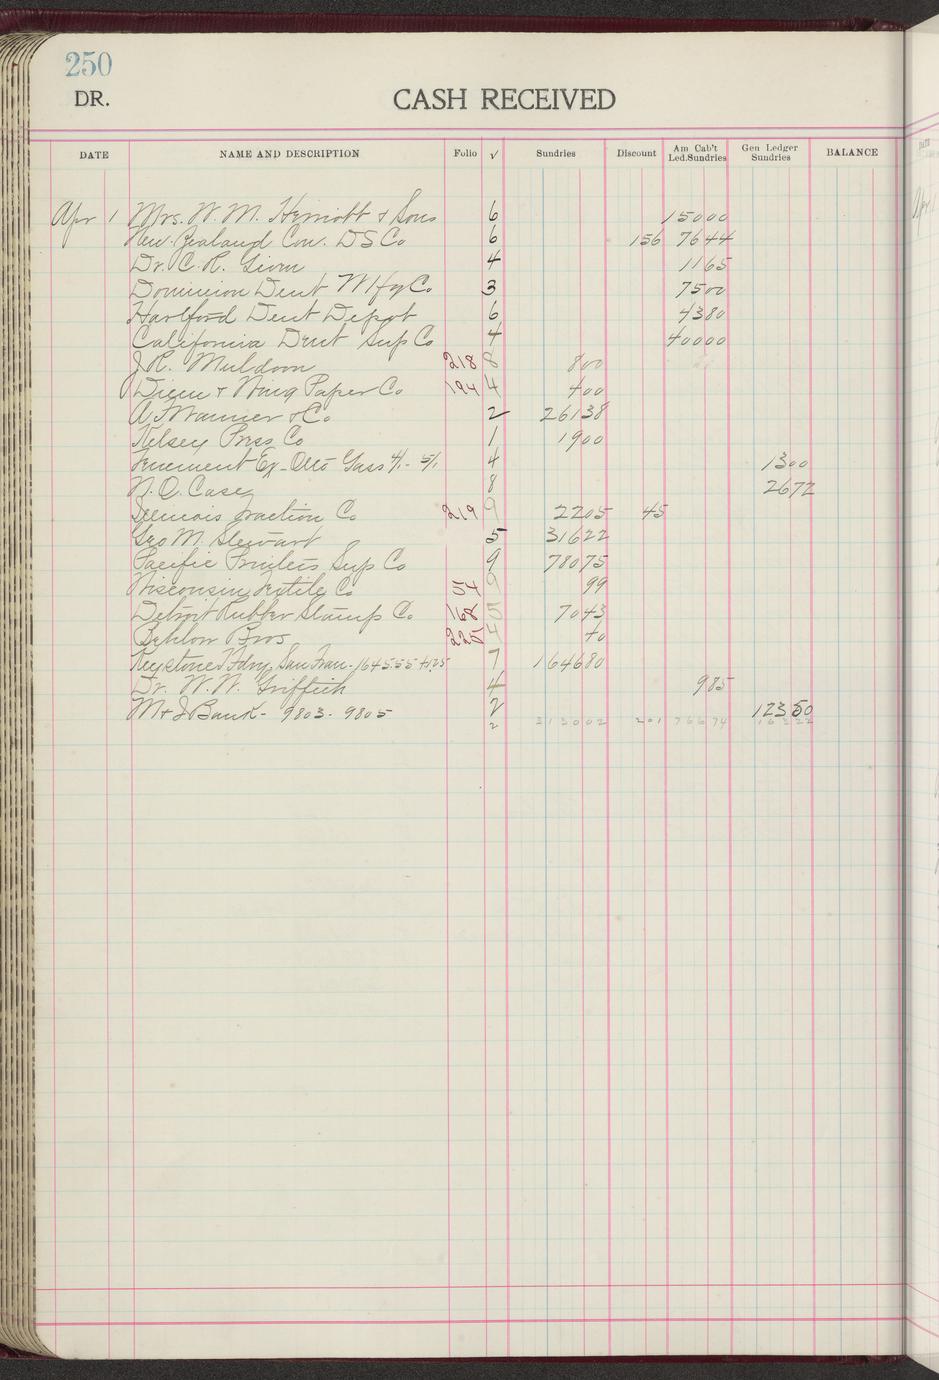 250
DR. CASH RECEIVED
DATE NAME AND DESCRIPTION Folio √ Sundries Discount Am Cab't Led. Sundries Gen Ledger Sundries BALANCE
Apr 1 Mrs. W. M. Herriott & Sons 6 15000
New Zealand Con. D S Co 6 156 7644
Dr. C. R. 4 1165
Dominion Dent Mfg Co 3 7500
Hartford Dent Depot 6 4380
California Dent Sup Co 4 40000
J. R. Muldoon 218 8 800
Diem & Wing Paper Co 194 4 400
A F Wanner & Co 2 26138
Kelsey Press Co 1 1900
Tenement Ex - Otto Gass 4/1 - 5/1 4 1300
N. O. Casey 8 2672
Illinois Traction Co 219 9 2205 45
Geo M. Stewart 5 31622
Pacific Printers Sup Co 9 78075
Wisconsin Textile Co 54 9 99
Detroit Rubber Stamp Co. 168 5 7043
Behlow Bros 225 4 40
Keystone Fdry, San Fran - 164555 + 125 7 164680
Dr. W. W. Griffith 4 985
M & I Bank - 9803 - 9805 2 12350
2 313002 201 76674 16322